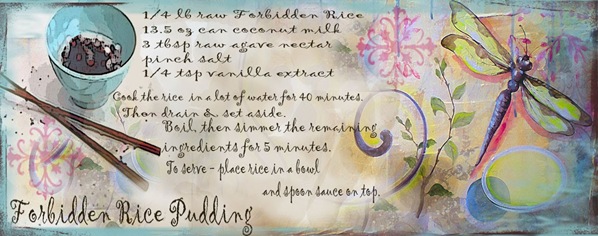 1/4 lb raw Forbidden Rice
13.5 oz can coconut milk
3 tbsp raw agave nectar
pinch salt
1/4 tsp vanilla extract
Cook the rice in a lot of water for 40 minutes.
Thon drain & set aside.
Boil, then simmer the remaining
ingredients for 5 minutes.
To serve - place rice in a bowl
and spoon sauce on top.
Forbidden Rice Pudding